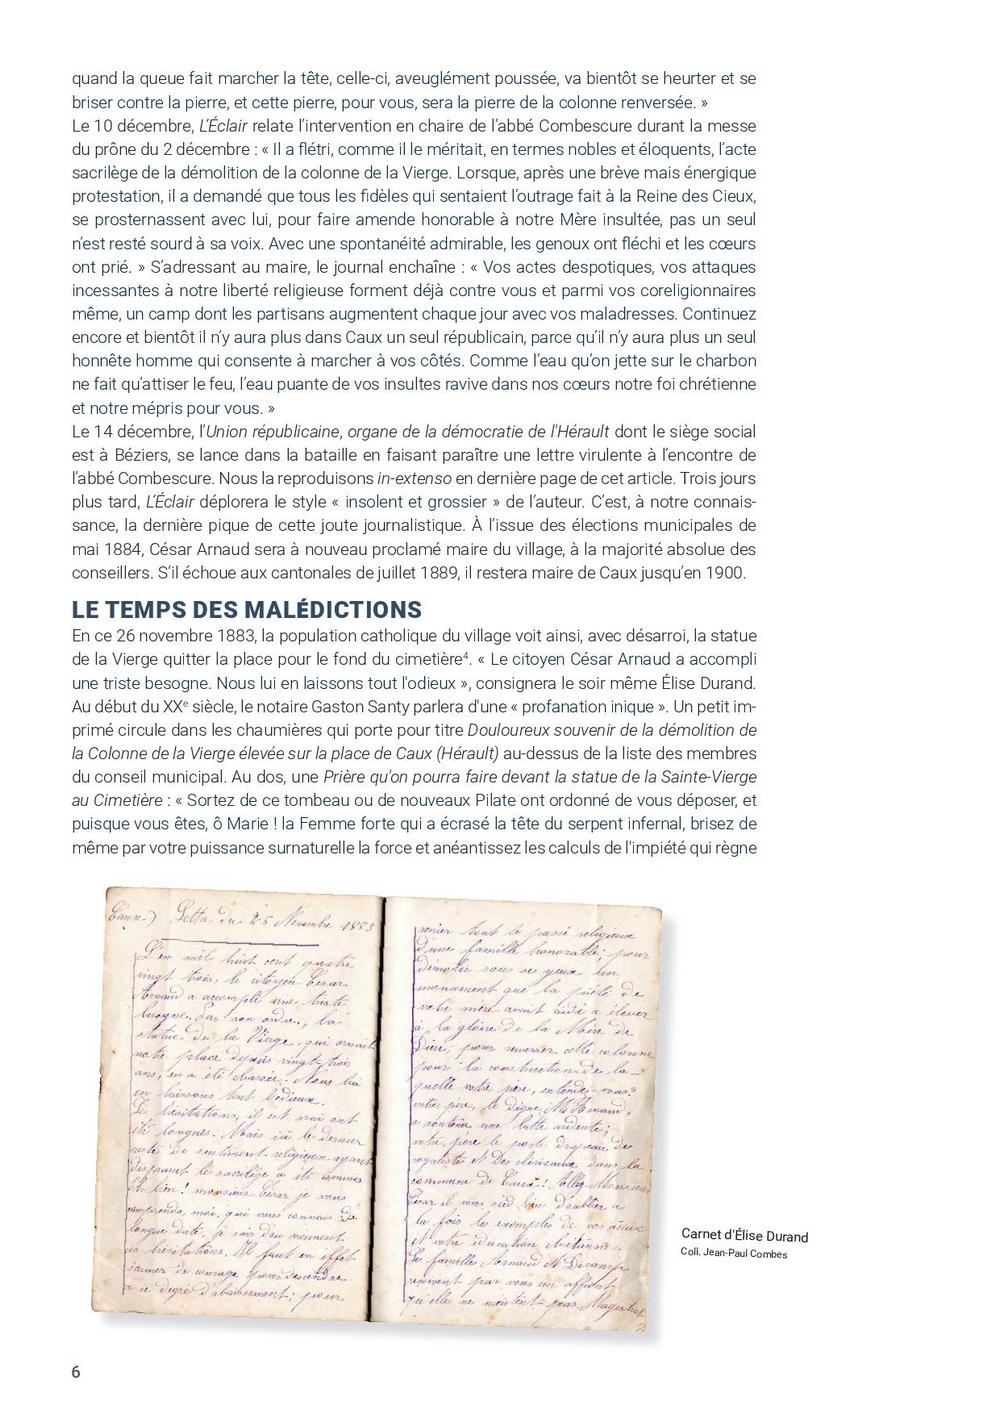 quand la queue fait marcher la tête, celle-ci, aveuglément poussée, va bientôt se heurter et se
briser contre la pierre, et cette pierre, pour vous, sera la pierre de la colonne renversée. »
Le 10 décembre, L’Éclair relate l’intervention en chaire de l’abbé Combescure durant la messe
du prône du 2 décembre : « Il a flétri, comme il le méritait, en termes nobles et éloquents, l’acte
sacrilège de la démolition de la colonne de la Vierge. Lorsque, après une brève mais énergique
protestation, il a demandé que tous les fidèles qui sentaient l’outrage fait à la Reine des Cieux,
se prosternassent avec lui, pour faire amende honorable à notre Mère insultée, pas un seul
n’est resté sourd à sa voix. Avec une spontanéité admirable, les genoux ont fléchi et les cœurs
ont prié. » S’adressant au maire, le journal enchaîne : « Vos actes despotiques, vos attaques
incessantes à notre liberté religieuse forment déjà contre vous et parmi vos coreligionnaires
même, un camp dont les partisans augmentent chaque jour avec vos maladresses. Continuez
encore et bientôt il n’y aura plus dans Caux un seul républicain, parce qu’il n’y aura plus un seul
honnête homme qui consente à marcher à vos côtés. Comme l’eau qu’on jette sur le charbon
ne fait qu’attiser le feu, l’eau puante de vos insultes ravive dans nos cœurs notre foi chrétienne
et notre mépris pour vous. »
Le 14 décembre, l’Union républicaine, organe de la démocratie de l'Hérault dont le siège social
est à Béziers, se lance dans la bataille en faisant paraître une lettre virulente à l’encontre de
l’abbé Combescure. Nous la reproduisons in-extenso en dernière page de cet article. Trois jours
plus tard, L’Éclair déplorera le style « insolent et grossier » de l’auteur. C’est, à notre connais-
sance, la dernière pique de cette joute journalistique. À l’issue des élections municipales de
mai 1884, César Arnaud sera à nouveau proclamé maire du village, à la majorité absolue des
conseillers. S’il échoue aux cantonales de juillet 1889, il restera maire de Caux jusqu’en 1900.
LE TEMPS DES MALÉDICTIONS
En ce 26 novembre 1883, la population catholique du village voit ainsi, avec désarroi, la statue
de la Vierge quitter la place pour le fond du cimetière⁴. « Le citoyen César Arnaud a accompli
une triste besogne. Nous lui en laissons tout l'odieux », consignera le soir même Élise Durand.
Au début du XXᵉ siècle, le notaire Gaston Santy parlera d'une « profanation inique ». Un petit im-
primé circule dans les chaumières qui porte pour titre Douloureux souvenir de la démolition de
la Colonne de la Vierge élevée sur la place de Caux (Hérault) au-dessus de la liste des membres
du conseil municipal. Au dos, une Prière qu'on pourra faire devant la statue de la Sainte-Vierge
au Cimetière : « Sortez de ce tombeau ou de nouveaux Pilate ont ordonné de vous déposer, et
puisque vous êtes, ô Marie ! la Femme forte qui a écrasé la tête du serpent infernal, brisez de
même par votre puissance surnaturelle la force et anéantissez les calculs de l'impiété qui règne
Caux) Lettre du 26 Novembre 1883
L'an mil huit cent quatre
vingt trois, le citoyen César
Arnaud a accompli une triste
besogne. Par son ordre, la
statue de la Vierge, qui ornait
notre place depuis vingt-trois
ans, en a été chassée. Nous lui
en laissons tout l'odieux.
Les hésitations, il est vrai ont
été longues. Mais ici le dernier
reste de sentiment religieux ayant
disparut le sacrilège a été commis
Eh bien ! monsieur César je vous
comprends, moi, qui vous connais de
longue date, je sais d'ou viennent
ces hésitations. Il faut en effet
s'armer de courage pour descendre
à ce degré d'abaissement ; pour
renier tout le passé religieux
d'une famille honorable ; pour
démolir sous ses yeux un
monument que la piété de
votre mère avait aidé à élever
à la gloire de la Mère de
Dieu ; pour renverser cette colonne
pour la construction de la-
quelle votre père, entendez-vous?
votre père, le digne Mr Arnaud,
a soutenu une lutte ardente ;
votre père le porte drapeau des
royalistes et des cléricaux dans la
commune de Caux ! Allez Monsieur
César il vous sied bien d'oublier à
la fois les exemples de vos aieux
et votre éducation chrétienne.
La famille Arnaud et
reçoivent par vous un affront
qu'elles ne méritent pas.
Carnet d'Élise Durand
Coll. Jean-Paul Combes
6